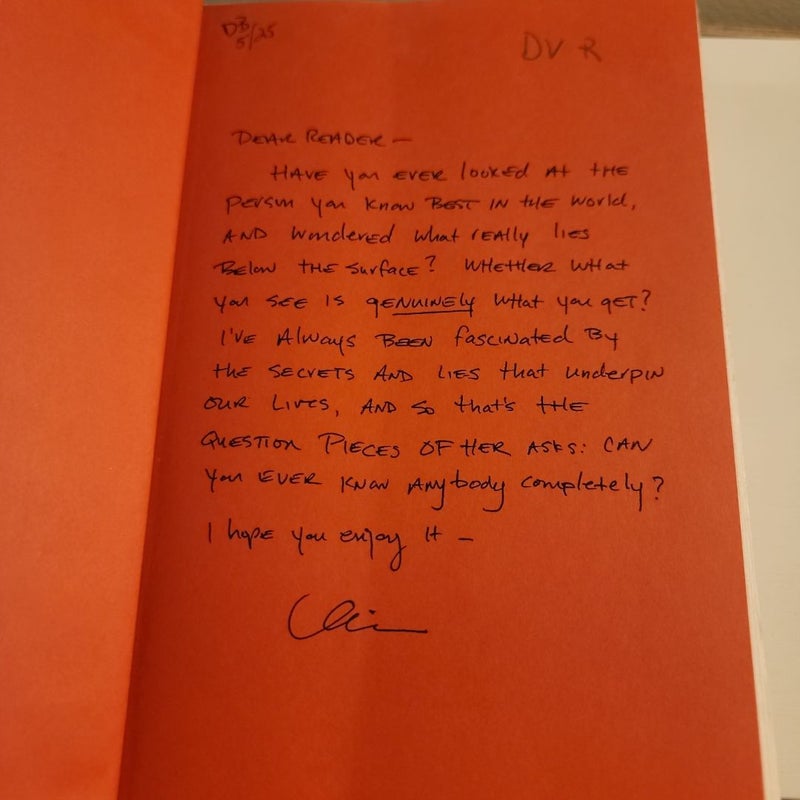 DB
5/25
DV R
DEAR READER —
HAVE you EVER looked At tHE
person you know BEST IN tHE world,
AND wondered what rEAlly lies
Below tHE surface? WHETHER WHAt
you SEE IS gENUINELY WHAt you gET?
I'VE Always BEEN fascinated By
tHE SECRETS AND LIES that underpin
OUR LIVES, AND so that's tHE
QUESTION PIECES OF HER ASKS: CAN
you EVER KNOW ANybody completely?
I hope you enjoy It —